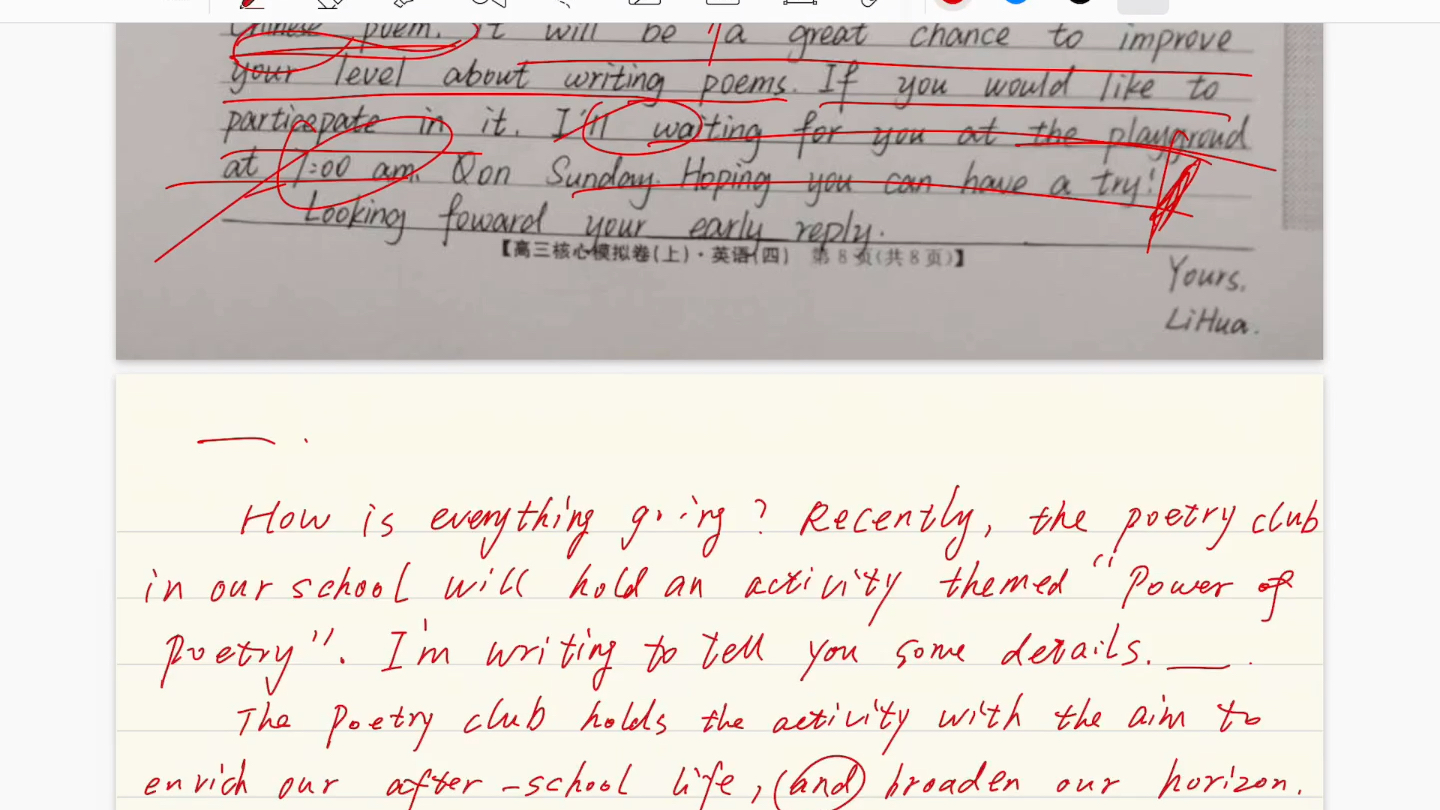 Chinese poem. It will be a great chance to improve
your level about writing poems. If you would like to
particepate in it. I'll waiting for you at the playgroud
at 7:00 am. on Sunday. Hoping you can have a try!
Looking foward your early reply.
【高三核心模拟卷(上)·英语(四) 第8页(共8页)】
Yours,
LiHua.
How is everything going? Recently, the poetry club
in our school will hold an activity themed "Power of
Poetry". I'm writing to tell you some details.
The Poetry club holds the activity with the aim to
enrich our after-school life, (and) broaden our horizon.